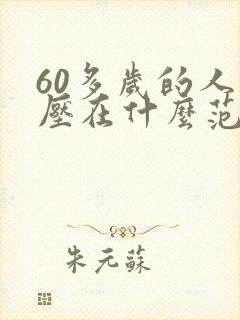 60多歲的人
壓在什麼范
朱元蘇